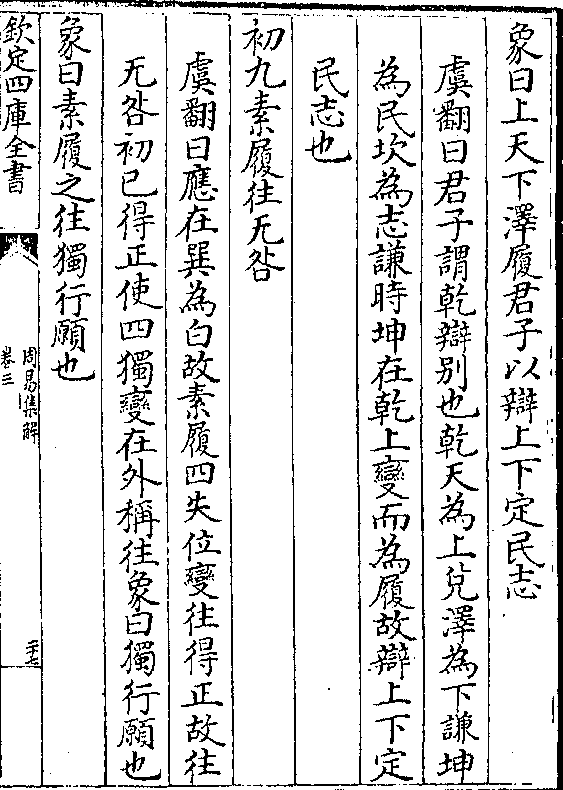 象曰上天下澤履君子以辯上下定民志
虞翻曰君子謂乾辯别也乾天為上兌澤為下謙坤
為民坎為志謙時坤在乾上變而為履故辯上下定
民志也
初九素履往无咎
虞翻曰應在巽為白故素履四失位變往得正故往
无咎初已得正使四獨變在外稱往象曰獨行願也
象曰素履之往獨行願也
欽定四庫全書
周易集解
卷三
二十七